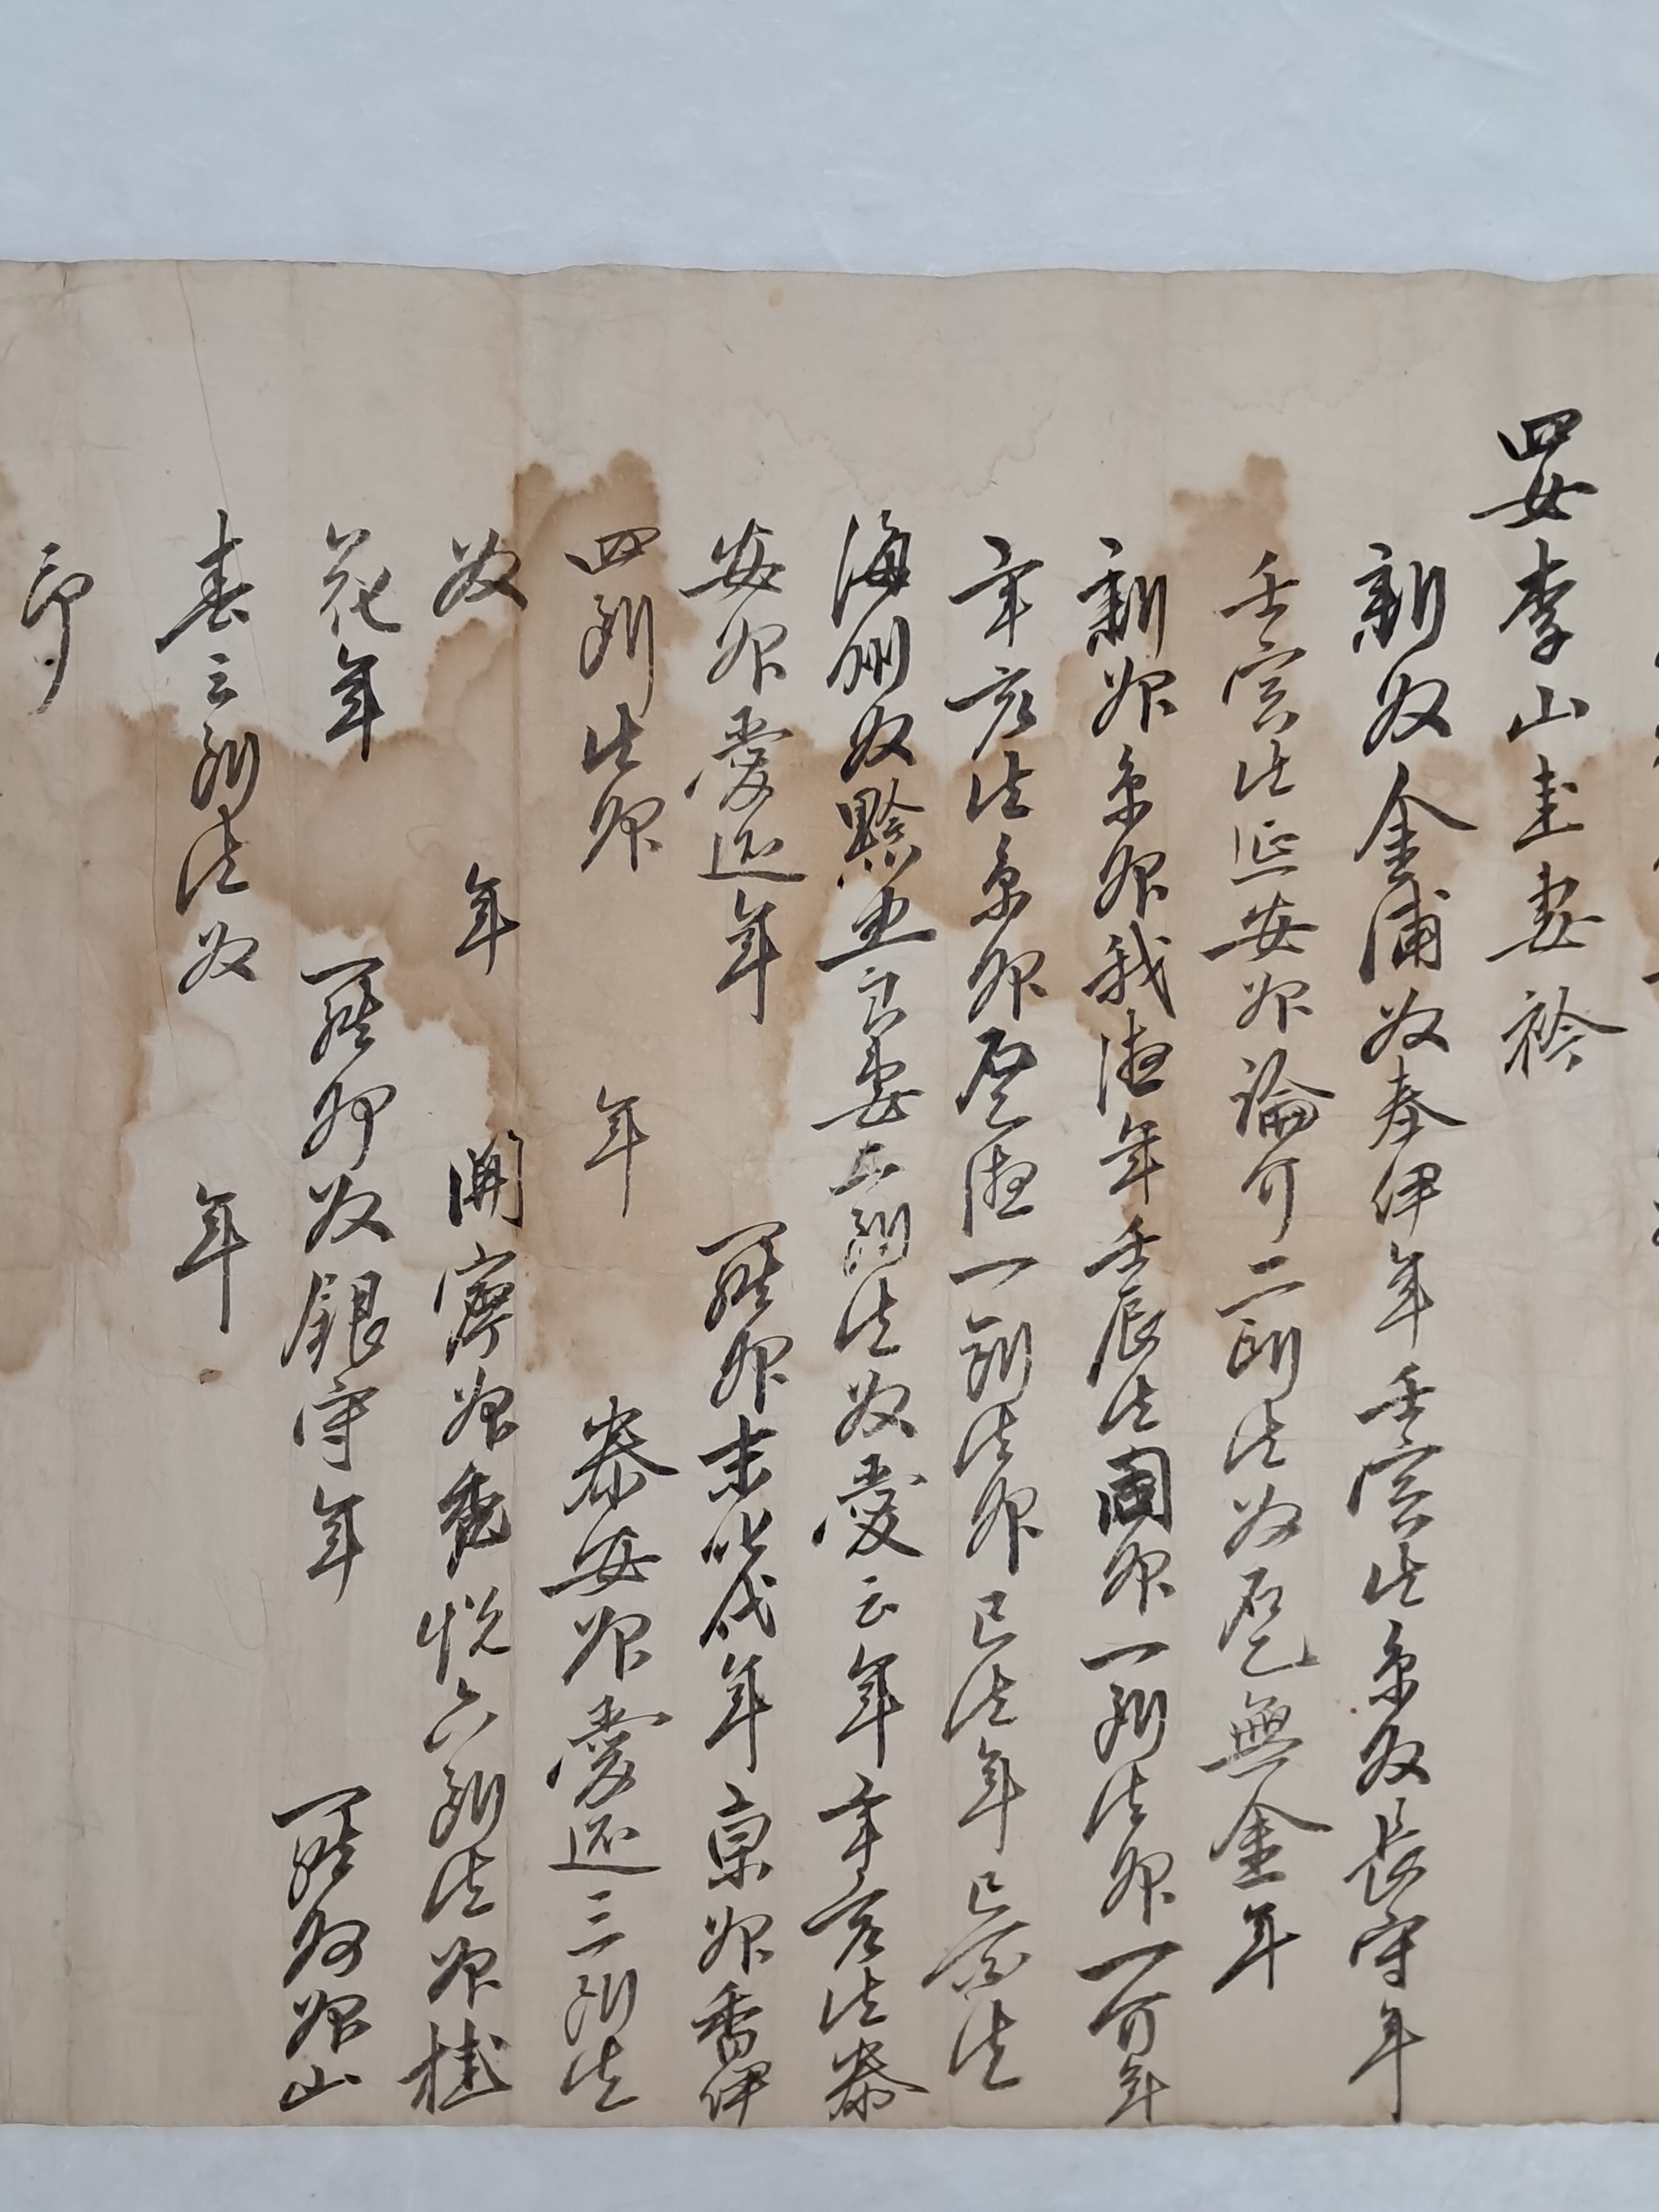 四女李山圭妻衿
新奴金浦奴奉伊年壬寅生京奴長守年
壬寅生延安婢論介二所生奴㐗無金年
新婢京婢我德年壬辰生婢一所生婢一介年
辛亥生京婢㐗德一所生婢己生年己酉生
海州奴黔同良妻三所生奴愛云年辛亥生泰
安婢愛還年 羅州婢末叱代年京婢香伊
四所生婢 年 泰安婢愛還三所生
奴 年 開寧婢香悅六所生婢桂
花年 羅州奴銀守年 羅州婢山
春三所生奴 年
印